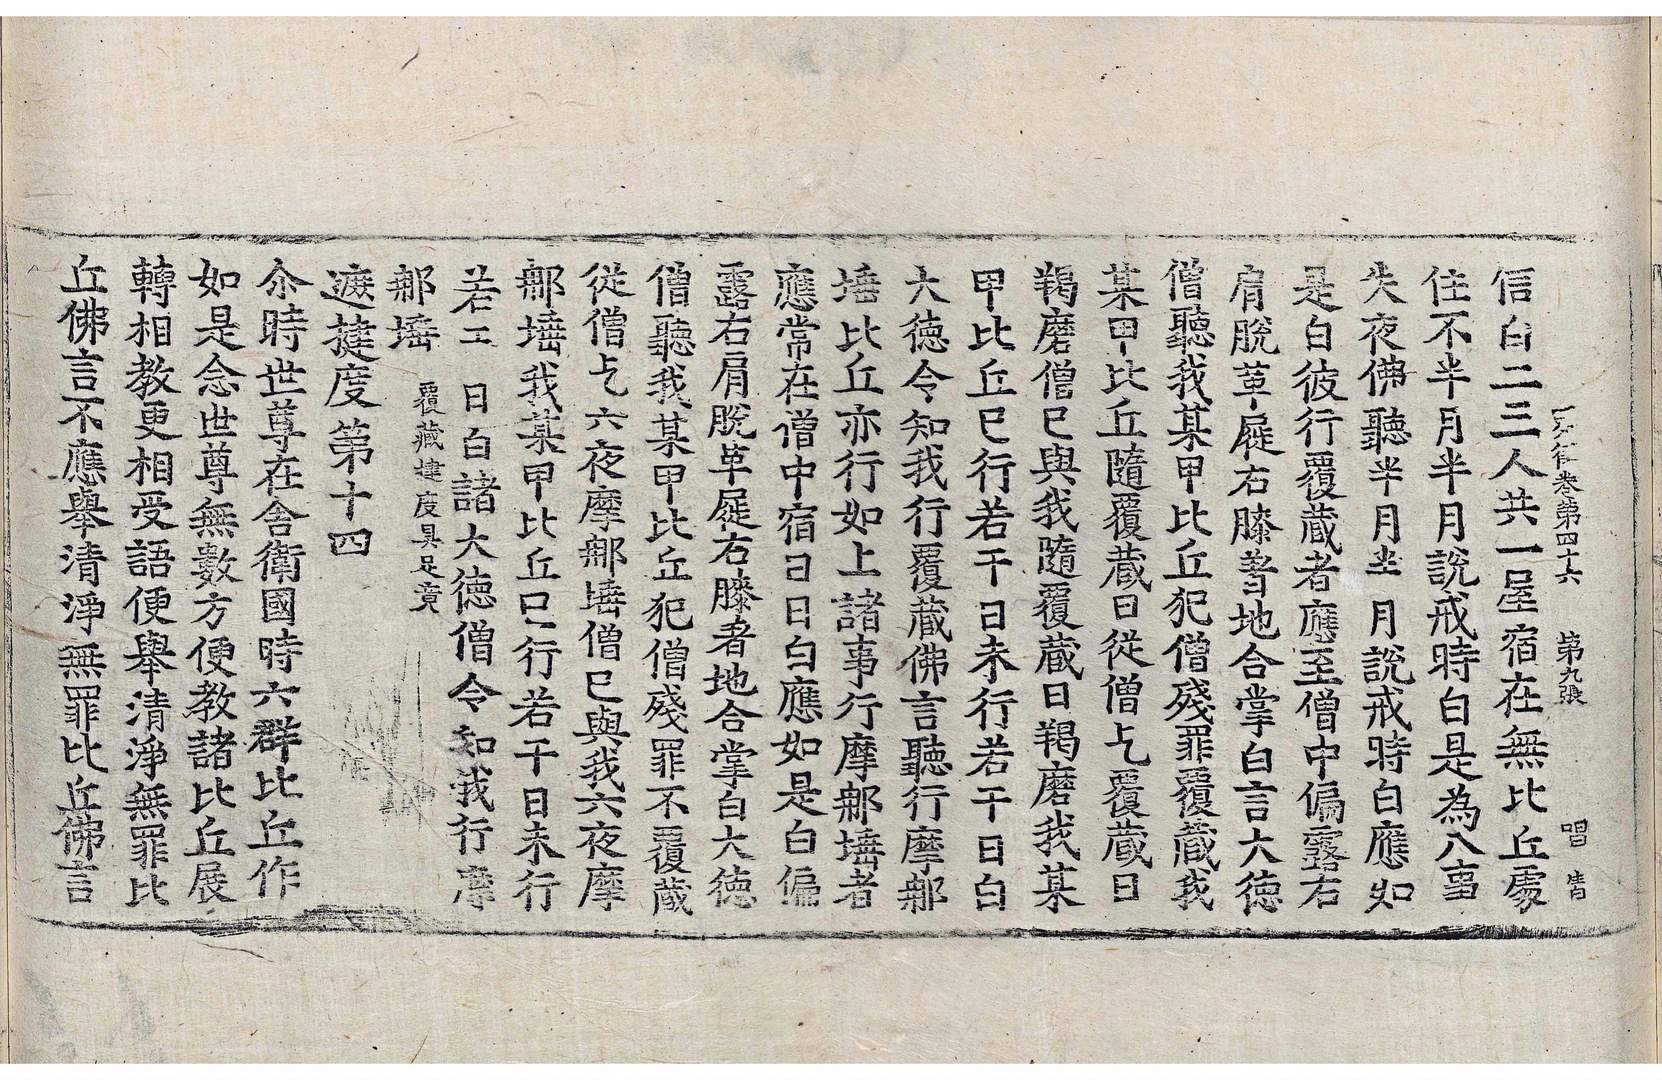 四分律卷第四十六 第九張 唱 靑
信白二三人共一屋宿在無比丘處
住不半月半月說戒時白是為八事
失夜佛聽半月半月說戒時白應如
是白彼行覆藏者應至僧中偏露右
肩脫革屣右膝著地合掌白言大德
僧聽我某甲比丘犯僧殘罪覆藏我
某甲比丘隨覆藏日從僧乞覆藏日
羯磨僧已與我隨覆藏日羯磨我某
甲比丘已行若干日未行若干日白
大德令知我行覆藏佛言聽行摩那
埵比丘亦行如上諸事行摩那埵者
應常在僧中宿日日白應如是白偏
露右肩脫革屣右膝著地合掌白大德
僧聽我某甲比丘犯僧殘罪不覆藏
從僧乞六夜摩那埵僧已與我六夜摩
那埵我某甲比丘已行若干日未行
若干日白諸大德僧令知我行摩
那埵 覆藏揵度具足竟
遮揵度第十四
尒時世尊在舍衛國時六群比丘作
如是念世尊無數方便教諸比丘展
轉相教更相受語便舉清淨無罪比
丘佛言不應舉清淨無罪比丘佛言